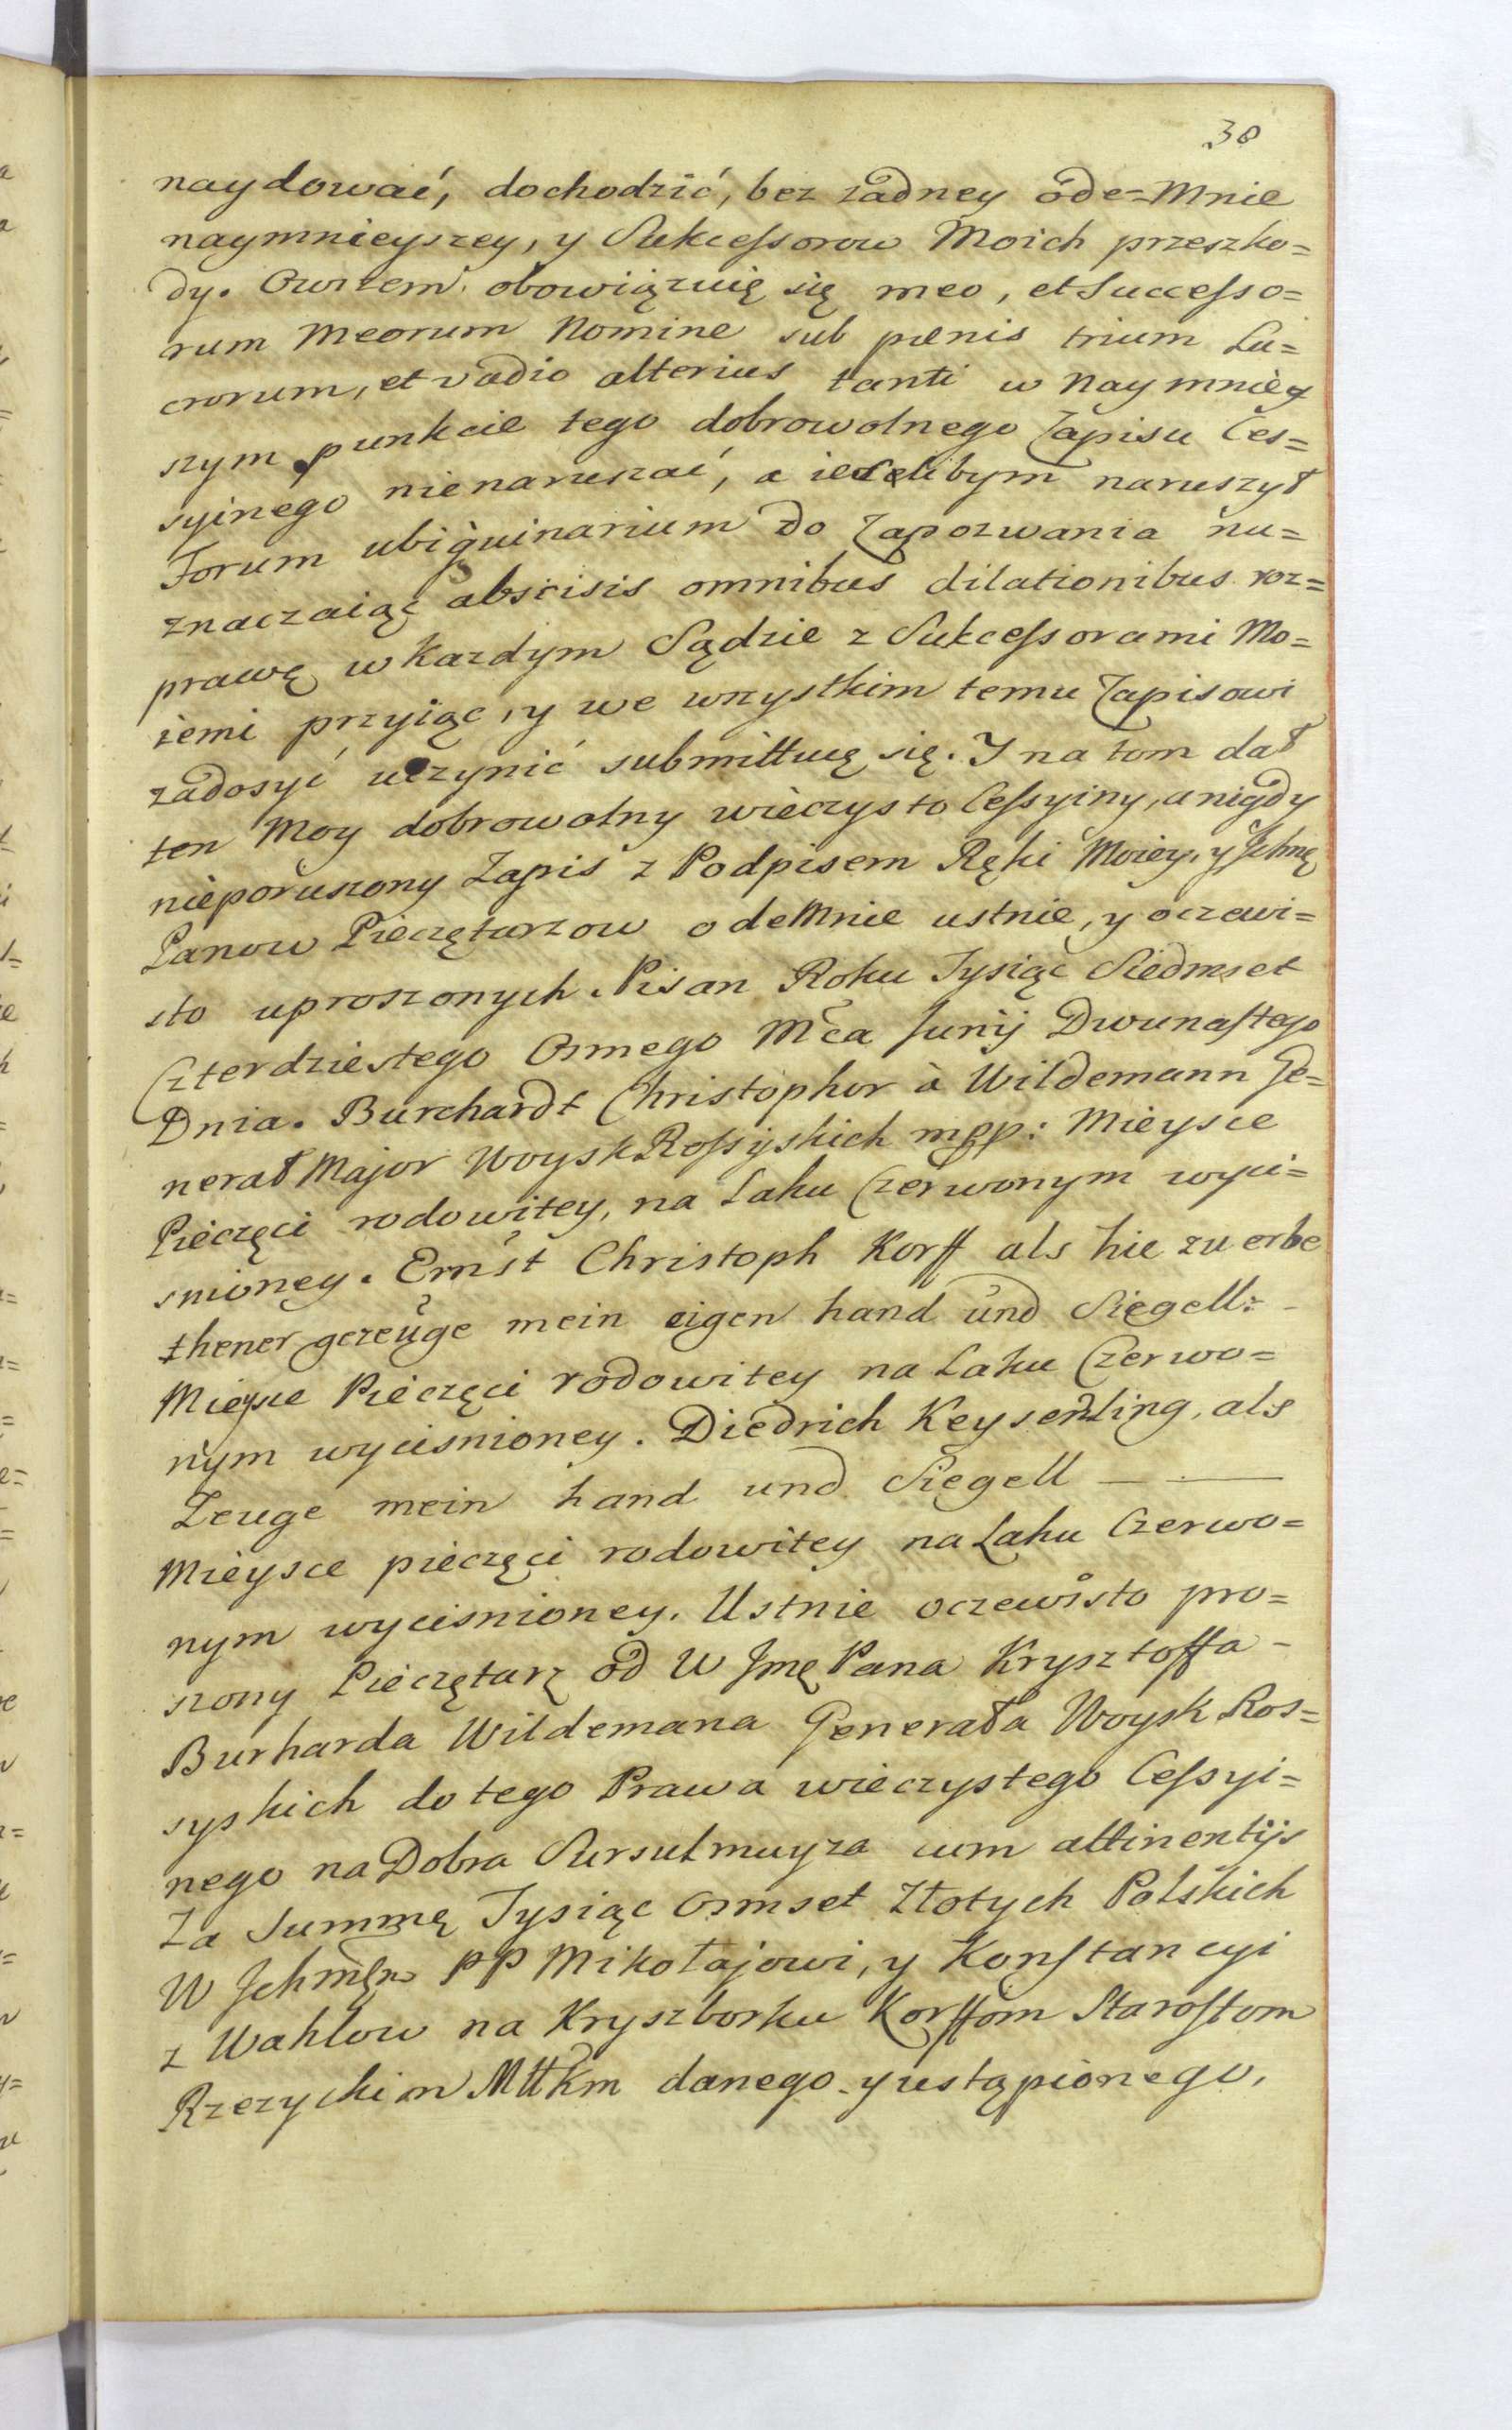 30
naydować, dochodzić, bez żadney ode=Mnie
naymnieyszey, y Sukcessorow Moich przeszko=
dy. Owszem obowiązuię się meo, et Successo=
rum Meorum Nomine sub pœnis trium Lu=
crorum, et vadio alterius tanti w Naymniey
szym punkcie tego dobrowolnego Zapisu Ces=
syinego nienaruszać, a ieżelibym naruszył
Forum ubiquinarium do Zapozwania nu=
znaczaiąc abscisis omnibus dilationibus roz=
prawę w Każdym Sądzie z Sukcessorami Mo=
iemi przyiąc, y we wszystkim temu Zapisowi
zadosyć uczynić submittuię się. Y na tom dał
ten Moy dobrowolny wieczysto Cessyiny, a nigdy
nieporuszony Zapis z Podpisem Ręki Moiey, y Jchmę
Panow Pieczętarzow odeMnie ustnie, y oczewi=
sto uproszonych. Pisan Roku Tysiąc Siedmset
Czterdziestego Osmego Mca Junij Dwunastego
Dnia. Burchardt Christophor à Wildemann Ge=
nerał Major Woysk Rossyskich mpp: Mieysce
Pieczęci rodowitey, na Laku Czerwonym wyci=
snioney. Ernst Christoph Korff als hie zu erbe
thener gezeuge mein eigen hand und Siegell: -
Mieysce Pieczęci rodowitey na Laku Czerwo=
nym wycisnioney. Diedrich Keyserling, als
Zeuge mein hand und Siegell — —
Mieysce pieczęci rodowitey na Laku Czerwo=
nym wycisnioney. Ustnie oczewisto pro=
szony Pieczętarz od W Jmę Pana Krysztoffa -
Burharda Wildemana Generała Woysk Ros=
syskich do tego Prawa wieczystego Cessyi=
nego na Dobra Sursulmuyza cum attinentijs
Za Summę Tysiąc Osmset Złotych Polskich
W Jchmęm PP Mikołajowi, y Konstancyi
z Wahlow na Kryszborku Korffom Starostom
Rzeżyckim Mttkm danego y ustąpionego,